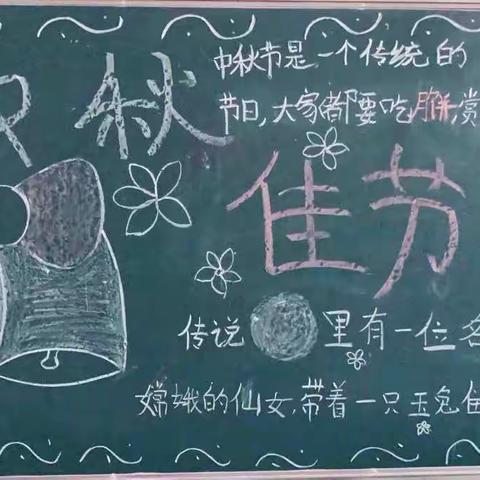 秋
中秋节是一个传统的
节日,大家都要吃,赏
佳节
传说里有一位名
嫦娥的仙女,带着一只玉兔住